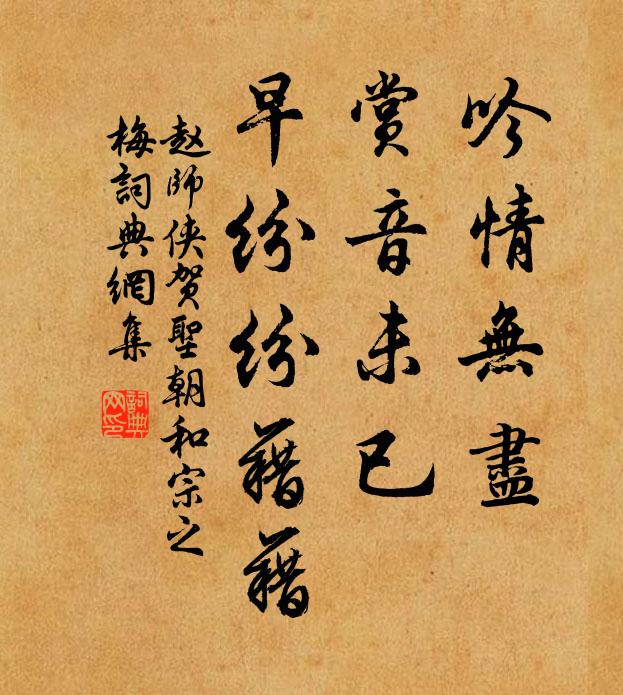 吟情無盡
賞音未已
早纷纷藉藉
赵師侠贺聖朝和宗之
梅詞典網集
詞典网印